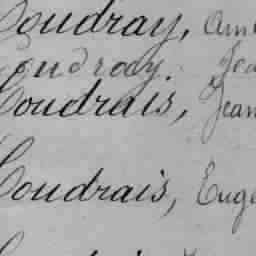 Coudray,
Coudray.
Coudrais, Jean
Coudrais, Euge